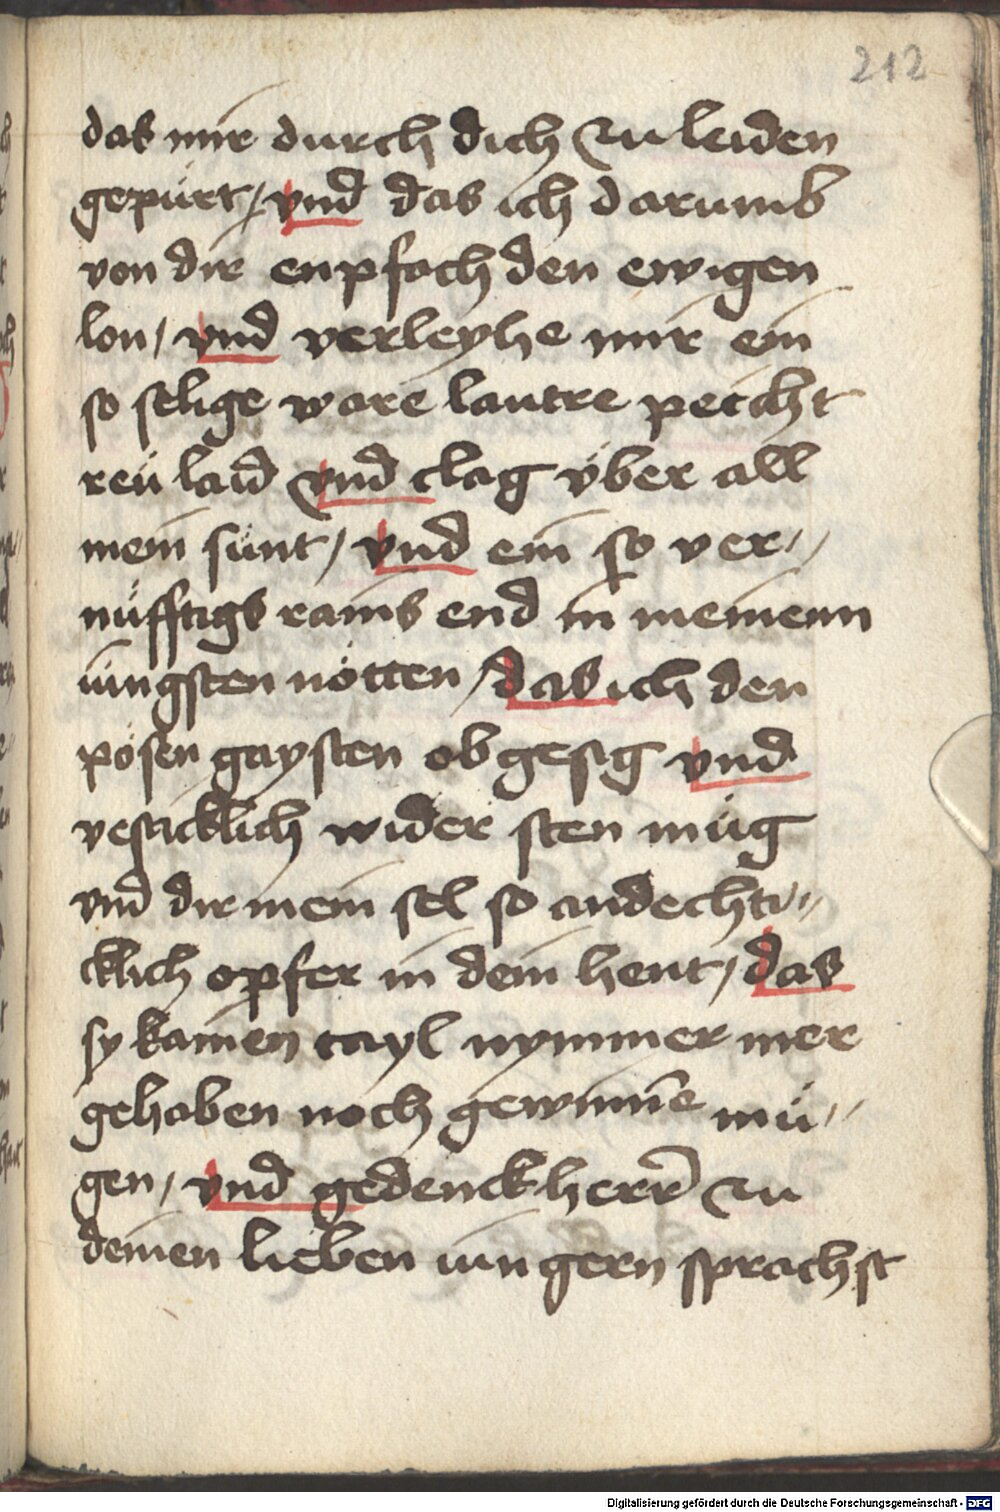 212
das mir durch dich zu leiden
gepürt / vnd das ich darumb
von dir enpfach den ewigen
lon / vnd verleyhe mir ein
so selige ware lautre peicht
reü laid vnd clag über all
mein sünt / vnd ein so ver//
nüfftigs rains end in meinenn
iüngsten nötten / das ich den
pösen gaysten obgesig vnd
vesticklich wider sten müg
vnd dir mein sel so andechti//
cklich opfer in dein hent / das
sy kainen tayl nymmer mer
gehaben noch gewinnē mü//
gen / vnd gedenck herr̄ zu
deinen lieben iüngern sprachst
Digitalisierung gefördert durch die Deutsche Forschungsgemeinschaft - DFG